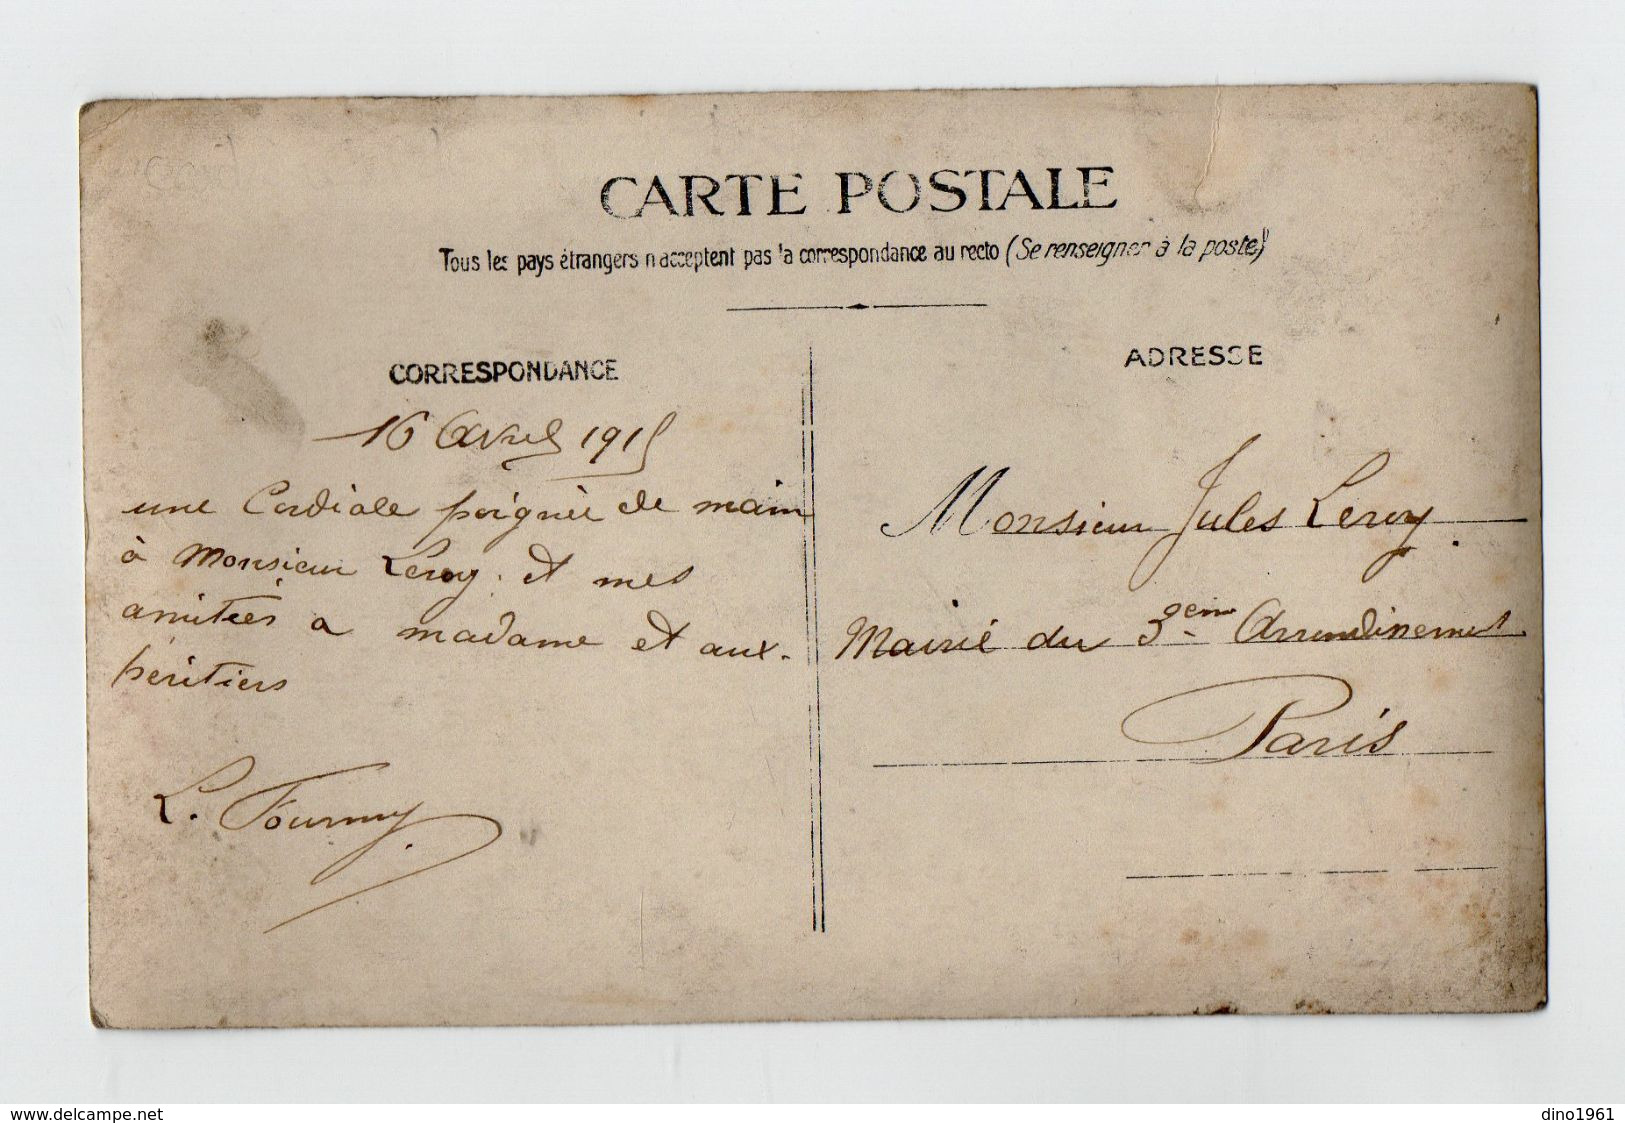 CARTE POSTALE
Tous les pays étrangers n'acceptent pas la correspondance au recto (Se renseigner à la poste)
CORRESPONDANCE
16 Avril 1915
une Cordiale poignée de main
à Monsieur Leroy. et mes
amitiées a madame et aux.
héritiers
L. Fourny
ADRESSE
Monsieur Jules Leroy.
Mairie du 3eme Arrondinement
Paris
www.delcampe.net
dino1961